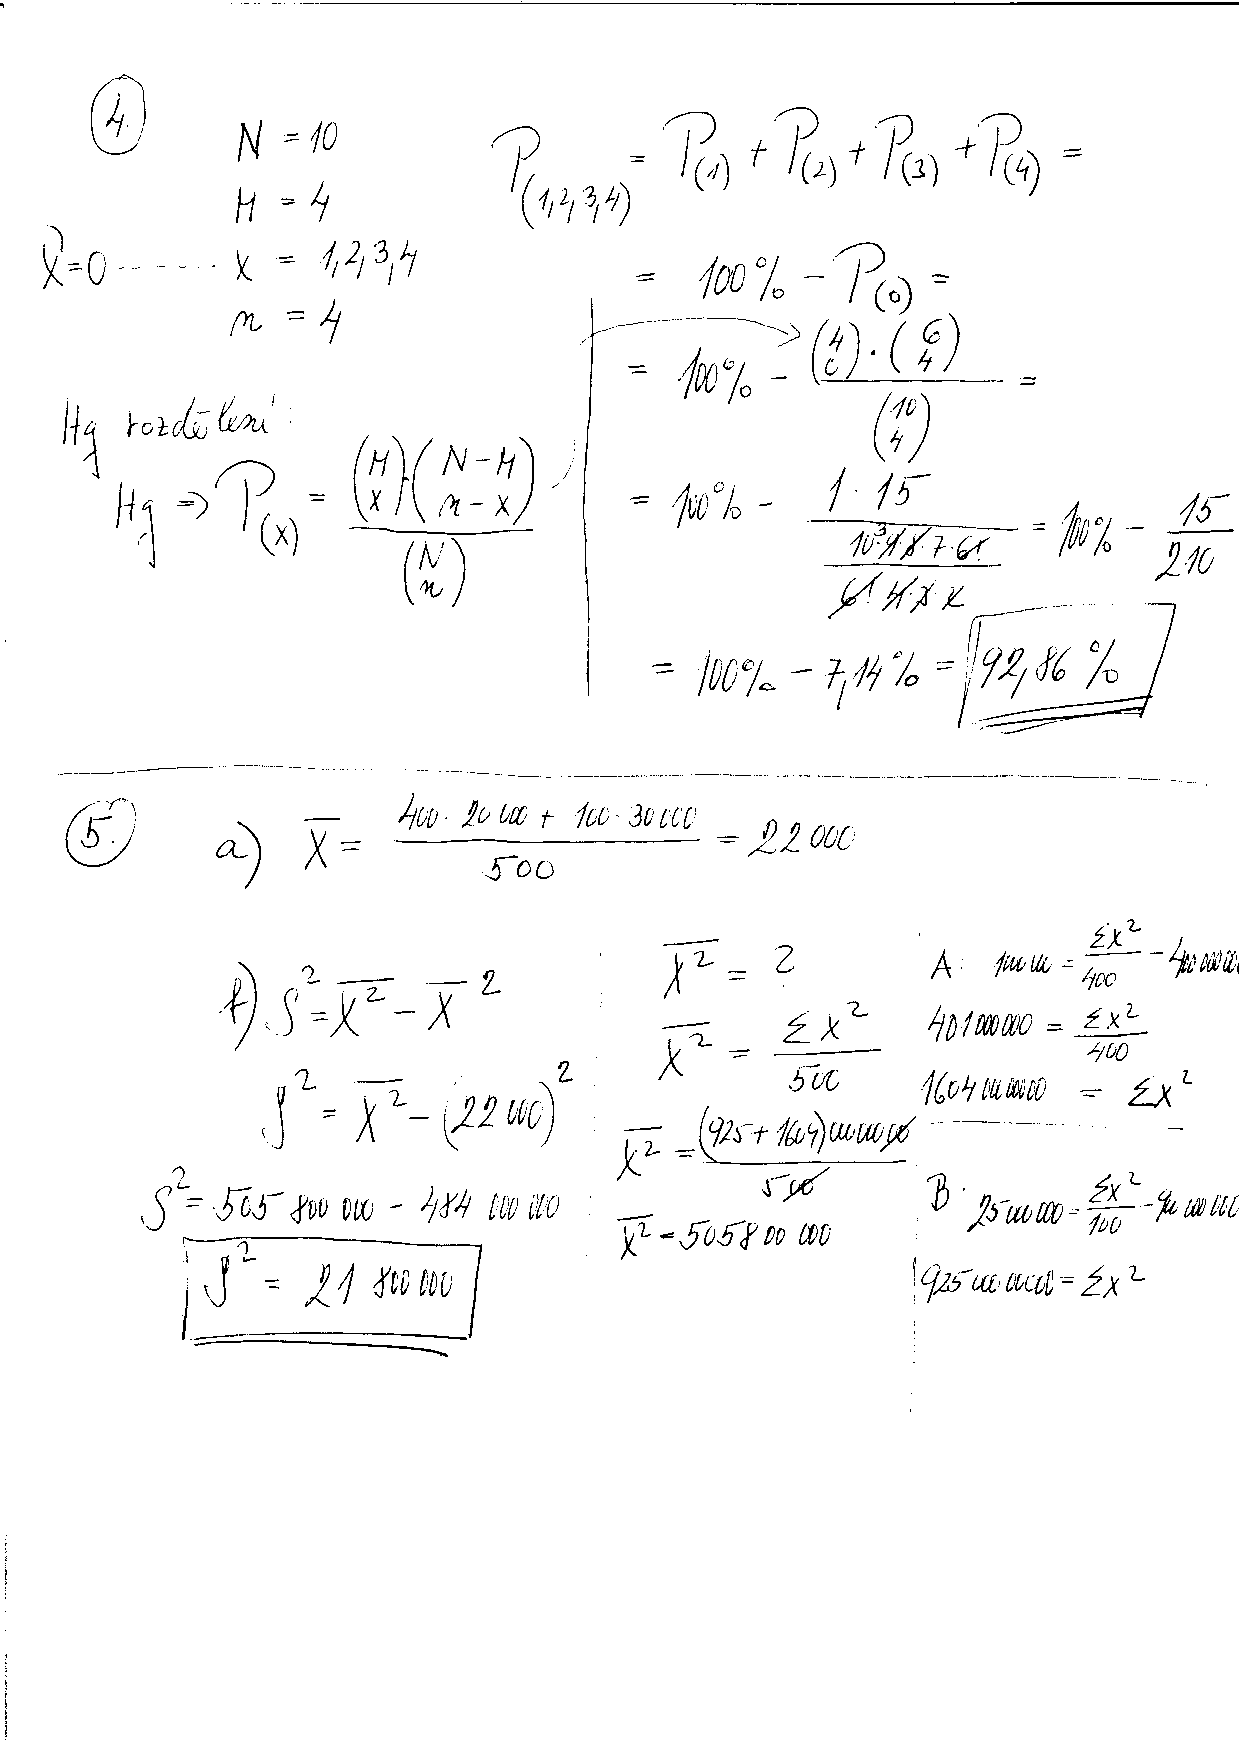 4.
N = 10
M = 4
X̄=0 ------ x = 1,2,3,4
n = 4
Hg rozdělení:
Hg => P(x) = (M x)·(N-M n-x) / (N n)
P(1,2,3,4) = P(1) + P(2) + P(3) + P(4) =
= 100% - P(0) =
= 100% - (4 0)·(6 4) / (10 4) =
= 100% - 1·15 / (10·9·8·7·6! / 6!·4·3·2) = 100% - 15/210
= 100% - 7,14% = 92,86 %
5.
a) X̄ = (400·20 000 + 100·30 000) / 500 = 22 000
b) S² = X̄² - X̄ ²
S² = X̄² - (22 000)²
S² = 505 800 000 - 484 000 000
S² = 21 800 000
X̄² = ?
X̄² = Σx² / 500
X̄² = (925+1604)00000000 / 500
X̄² = 505800 000
A: 1000 000 = Σx²/400 - 400 000 000
401 000 000 = Σx²/400
1604 00 000 000 = Σx²
B: 25 000 000 = Σx²/100 - 900 000 000
925 00 000 000 = Σx²